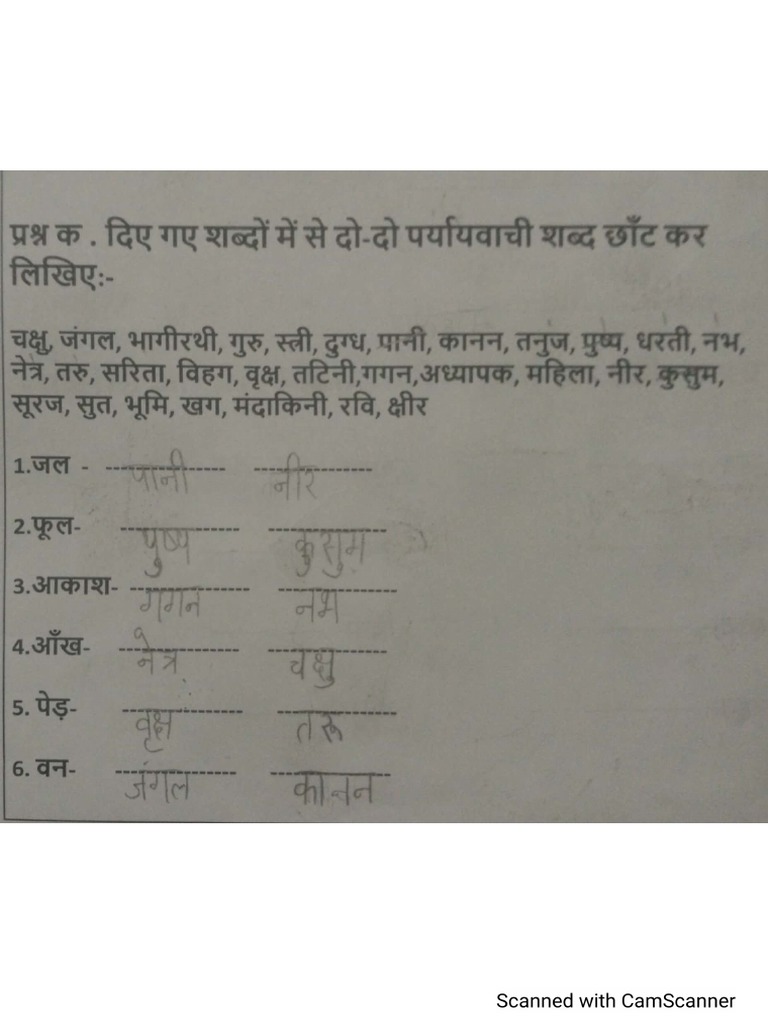 प्रश्न क . दिए गए शब्दों में से दो-दो पर्यायवाची शब्द छाँट कर
लिखिए:-
चक्षु, जंगल, भागीरथी, गुरु, स्त्री, दुग्ध, पानी, कानन, तनुज, पुष्प, धरती, नभ,
नेत्र, तरु, सरिता, विहग, वृक्ष, तटिनी,गगन,अध्यापक, महिला, नीर, कुसुम,
सूरज, सुत, भूमि, खग, मंदाकिनी, रवि, क्षीर
1.जल - पानी नीर
2.फूल- पुष्प कुसुम
3.आकाश- गगन नभ
4.आँख- नेत्र चक्षु
5. पेड़- वृक्ष तरू
6. वन- जंगल कानन
Scanned with CamScanner